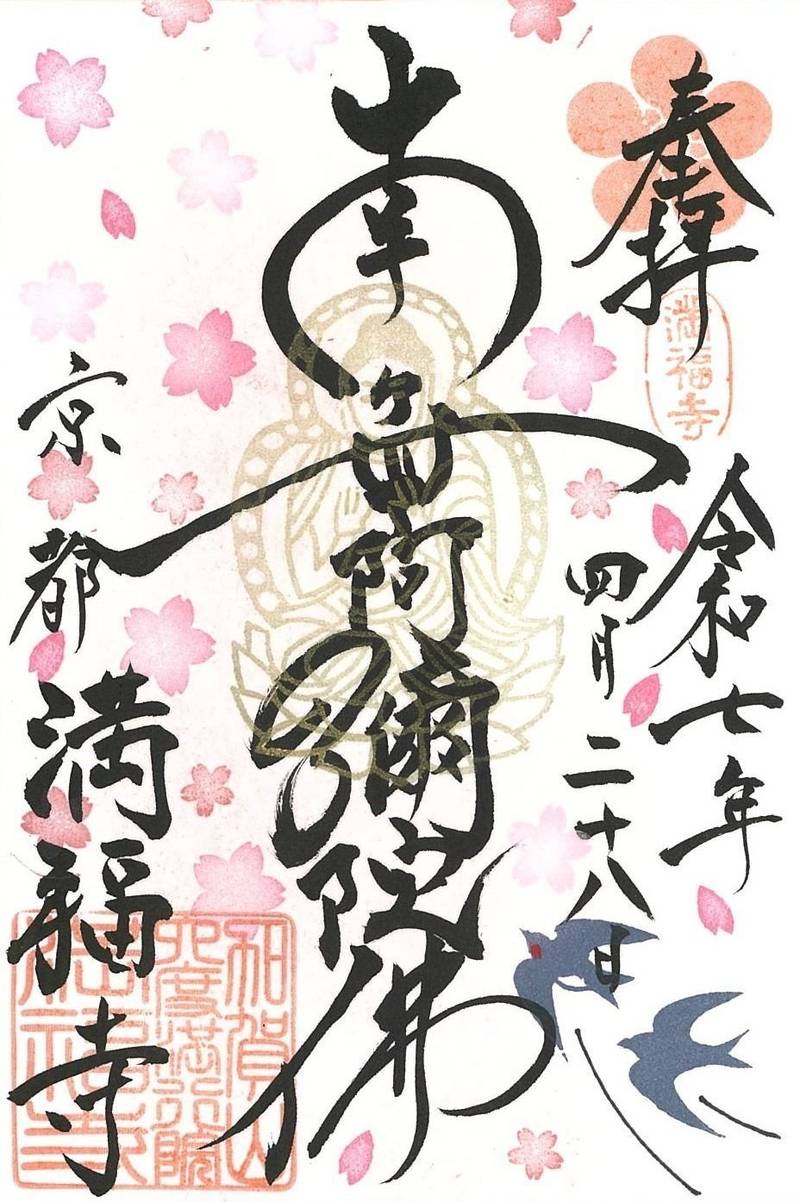 奉拝
満福寺
令和七年
四月二十八日
南無阿彌陀佛
京都
満福寺